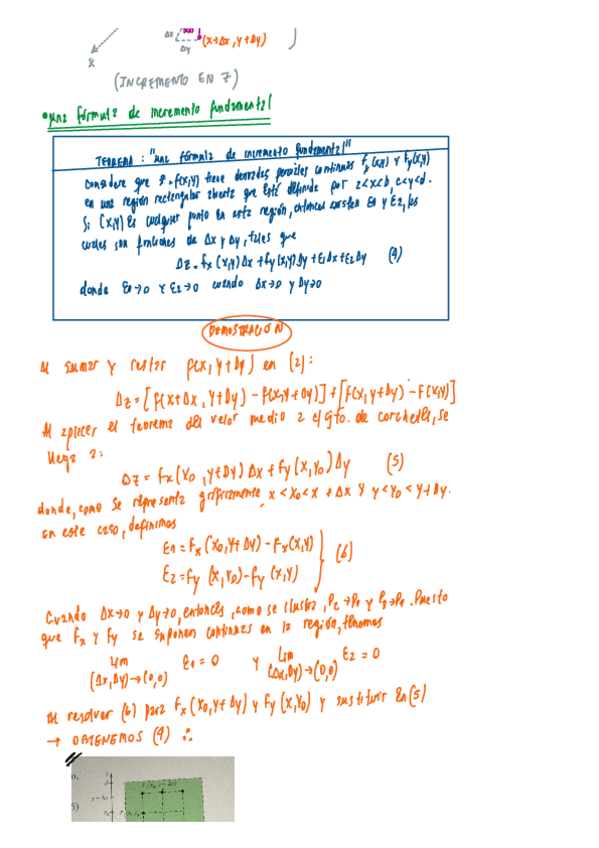 Δx
Δy
(x+Δx, y+Δy)
x
(INCREMENTO EN Z)
•una fórmula de incremento fundamental
TEOREMA: "una fórmula de incremento fundamental"
Considere que z=f(x,y) tiene derivadas parciales continuas fx(x,y) y fy(x,y)
en una región rectangular abierta que está definida por a<x<b, c<y<d.
Si (x,y) es cualquier punto en esta región, entonces existen E1 y E2, los
cuales son funciones de Δx y Δy, tales que
Δz=fx(x,y)Δx+fy(x,y)Δy+E1Δx+E2Δy (4)
donde E1→0 y E2→0 cuando Δx→0 y Δy→0
DEMOSTRACIÓN
Al sumar y restar f(x, y+Δy) en (2):
Δz=[f(x+Δx, y+Δy)-f(x,y+Δy)]+[f(x,y+Δy)-f(x,y)]
Al aplicar el teorema del valor medio a c/gto. de corchetes, se
llega a:
Δz=fx(x0, y+Δy)Δx+fy(x,y0)Δy (5)
donde, como se representa gráficamente, x<x0<x+Δx y y<y0<y+Δy.
En este caso, definimos
E1=fx(x0,y+Δy)-fx(x,y)
E2=fy(x,y0)-fy(x,y) } (6)
Cuando Δx→0 y Δy→0, entonces, como se ilustra, P2→P1 y P3→P1. Puesto
que fx y fy se suponen continuas en la región, tenemos
Lim E1=0 y Lim E2=0
(Δx,Δy)→(0,0) (Δx,Δy)→(0,0)
Al resolver (6) para fx(x0,y+Δy) y fy(x,y0) y sustituir en (5)
→ OBTENEMOS (4) ∴